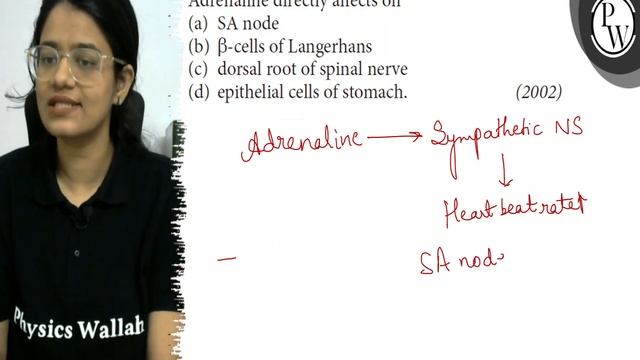 Adrenaline directly affects on
(a) SA node
(b) β-cells of Langerhans
(c) dorsal root of spinal nerve
(d) epithelial cells of stomach. (2002)
Adrenaline → Sympathetic NS
↓
Heart beat rate↑
— SA nod
Physics Wallah
P
W